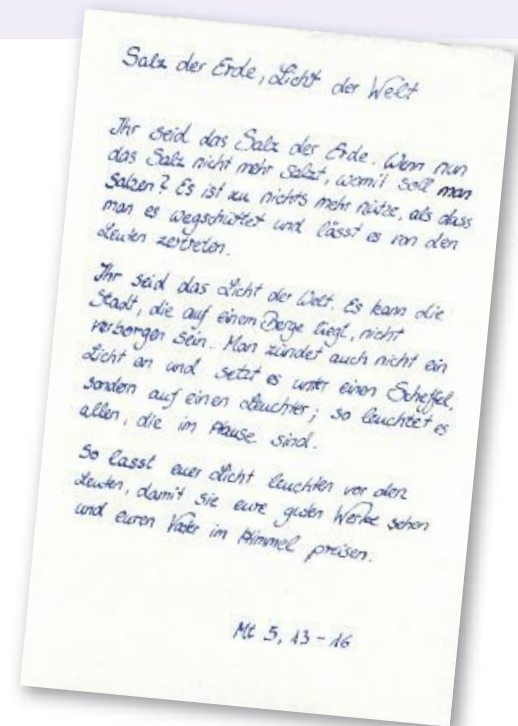 Salz der Erde, Licht der Welt
Ihr seid das Salz der Erde. Wenn nun
das Salz nicht mehr salzt, womit soll man
salzen? Es ist zu nichts mehr nütze, als dass
man es wegschüttet und lässt es von den
Leuten zertreten.
Ihr seid das Licht der Welt. Es kann die
Stadt, die auf einem Berge liegt, nicht
verborgen sein. Man zündet auch nicht ein
Licht an und setzt es unter einen Scheffel,
sondern auf einen Leuchter; so leuchtet es
allen, die im Hause sind.
So lasst euer Licht leuchten vor den
Leuten, damit sie eure guten Werke sehen
und euren Vater im Himmel preisen.
Mt 5, 13 - 16